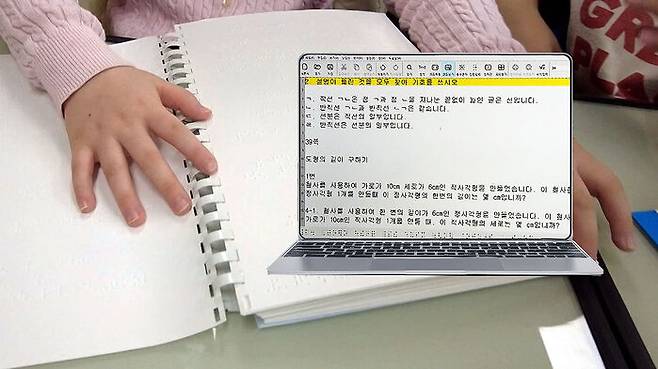 2. 설명이 틀린 것을 모두 찾아 기호를 쓰시오
ㄱ. 직선 ㄱㄴ은 점 ㄱ과 점 ㄴ을 지나는 끝없이 늘인 곧은 선입니다.
ㄴ. 반직선 ㄱㄴ과 반직선 ㄴㄱ은 같습니다.
ㄷ. 선분은 직선의 일부입니다.
ㄹ. 반직선은 선분의 일부입니다.
39쪽
도형의 길이 구하기
1번
철사를 사용하여 가로가 10cm 세로가 6cm인 직사각형을 만들었습니다. 이 철사
정사각형 1개를 만들때 이 정사각형의 한변의 길이는 몇 cm입니까?
4-1. 철사를 사용하여 한 변의 길이가 6cm인 정사각형을 만들었습니다. 이 철사
가로가 10cm인 직사각형 1개를 만들 때, 이 직사각형의 세로는 몇 cm입니까?
GRE
PLA